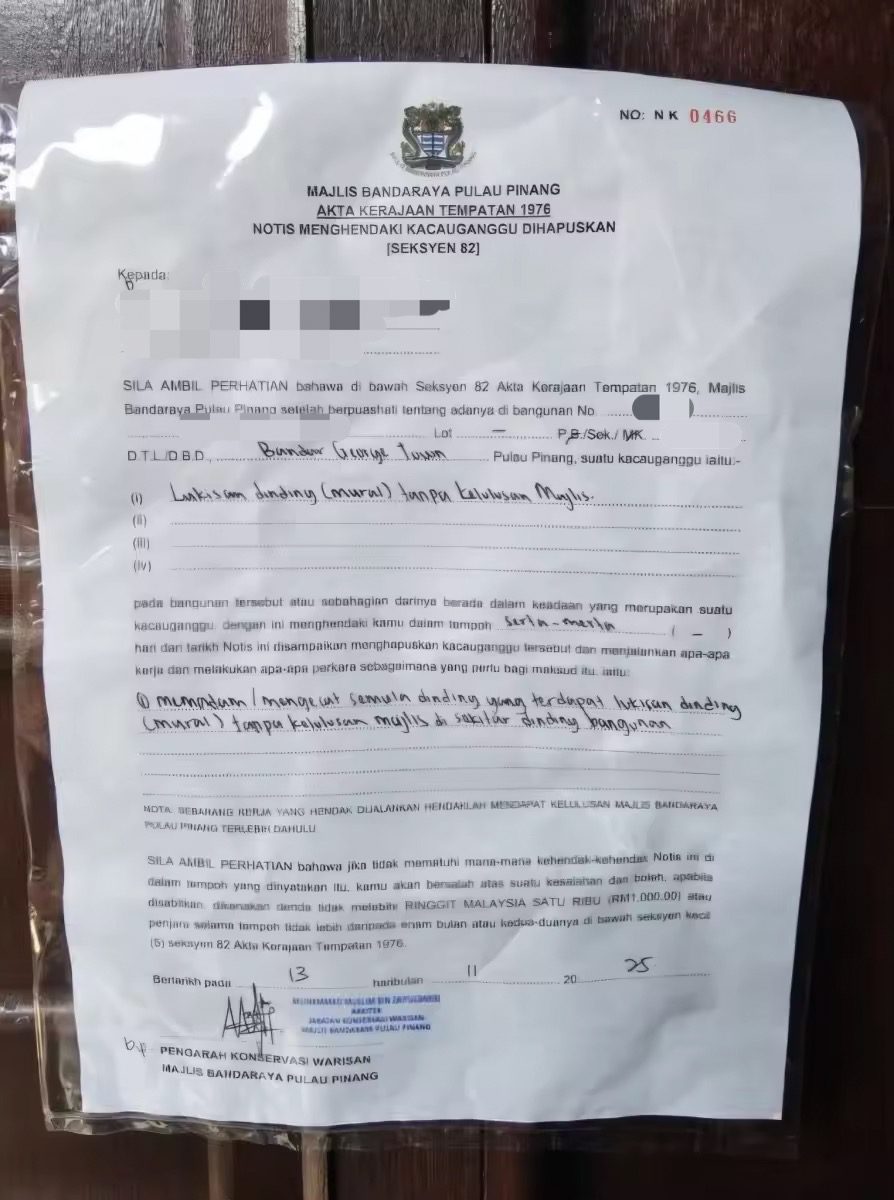 NO: N K 0466
MAJLIS BANDARAYA PULAU PINANG
AKTA KERAJAAN TEMPATAN 1976
NOTIS MENGHENDAKI KACAUGANGGU DIHAPUSKAN
[SEKSYEN 82]
Kepada:
SILA AMBIL PERHATIAN bahawa di bawah Seksyen 82 Akta Kerajaan Tempatan 1976, Majlis
Bandaraya Pulau Pinang setelah berpuashati tentang adanya di bangunan No
Lot – P.B./Sek./ MK.
D.T.L./D.B.D., Bandar George Town Pulau Pinang, suatu kacauganggu iaitu:-
(i) Lukisan dinding (mural) tanpa kelulusan Majlis.
(ii)
(iii)
(iv)
pada bangunan tersebut atau sebahagian darinya berada dalam keadaan yang merupakan suatu
kacauganggu, dengan ini menghendaki kamu dalam tempoh serta-merta ( – )
hari dari tarikh Notis ini disampaikan menghapuskan kacauganggu tersebut dan menjalankan apa-apa
kerja dan melakukan apa-apa perkara sebagaimana yang perlu bagi maksud itu, iaitu:
① memadam/mengecat semula dinding yang terdapat lukisan dinding
(mural) tanpa kelulusan majlis di sekitar dinding bangunan
NOTA: SEBARANG KERJA YANG HENDAK DIJALANKAN HENDAKLAH MENDAPAT KELULUSAN MAJLIS BANDARAYA
PULAU PINANG TERLEBIH DAHULU
SILA AMBIL PERHATIAN bahawa jika tidak mematuhi mana-mana kehendak-kehendak Notis ini di
dalam tempoh yang dinyatakan itu, kamu akan bersalah atas suatu kesalahan dan boleh, apabila
disabitkan, dikenakan denda tidak melebihi RINGGIT MALAYSIA SATU RIBU (RM1,000.00) atau
penjara selama tempoh tidak lebih daripada enam bulan atau kedua-duanya di bawah seksyen kecil
(5) seksyen 82 Akta Kerajaan Tempatan 1976.
Bertarikh pada 13 haribulan 11 20 25
MUHAMMAD MUSLIM BIN
ARKITEK
JABATAN KONSERVASI WARISAN
MAJLIS BANDARAYA PULAU PINANG
b.p PENGARAH KONSERVASI WARISAN
MAJLIS BANDARAYA PULAU PINANG